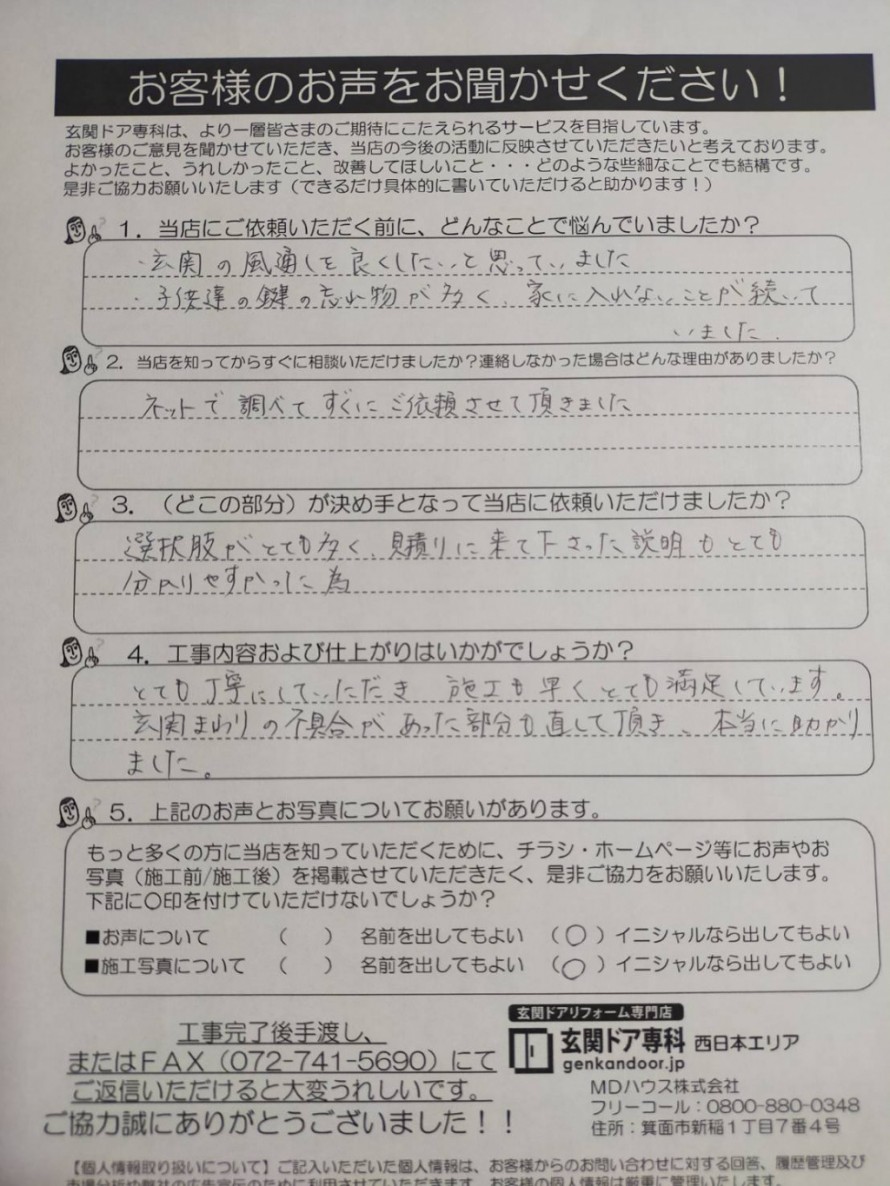 お客様のお声をお聞かせください！
玄関ドア専科は、より一層皆さまのご期待にこたえられるサービスを目指しています。
お客様のご意見を聞かせていただき、当店の今後の活動に反映させていただきたいと考えております。
よかったこと、うれしかったこと、改善してほしいこと・・・どのような些細なことでも結構です。
是非ご協力お願いいたします（できるだけ具体的に書いていただけると助かります！）
1．当店にご依頼いただく前に、どんなことで悩んでいましたか？
・玄関の風通しを良くしたいと思っていました
・子供達の鍵の忘れ物が多く、家に入れないことが続いて
いました.
2．当店を知ってからすぐに相談いただけましたか？連絡しなかった場合はどんな理由がありましたか？
ネットで調べてすぐにご依頼させて頂きました
3．（どこの部分）が決め手となって当店に依頼いただけましたか？
選択肢がとても多く、見積りに来て下さった説明もとても
分かりやすかった為
4．工事内容および仕上がりはいかがでしょうか？
とても丁寧にしていただき 施工も早くとても満足しています。
玄関まわりの不具合があった部分も直して頂き、本当に助かり
ました。
5．上記のお声とお写真についてお願いがあります。
もっと多くの方に当店を知っていただくために、チラシ・ホームページ等にお声やお
写真（施工前/施工後）を掲載させていただきたく、是非ご協力をお願いいたします。
下記に〇印を付けていただけないでしょうか？
■お声について （ ） 名前を出してもよい （〇）イニシャルなら出してもよい
■施工写真について （ ） 名前を出してもよい （〇）イニシャルなら出してもよい
工事完了後手渡し、
またはＦＡＸ（072-741-5690）にて
ご返信いただけると大変うれしいです。
ご協力誠にありがとうございました！！
玄関ドアリフォーム専門店
玄関ドア専科 西日本エリア
genkandoor.jp
ＭＤハウス株式会社
フリーコール：0800-880-0348
住所：箕面市新稲１丁目７番４号
【個人情報取り扱いについて】ご記入いただいた個人情報は、お客様からのお問い合わせに対する回答、履歴管理及び
市場分析や弊社の広告宣伝のために利用させていただきます。お客様の個人情報は厳重に管理いたします。